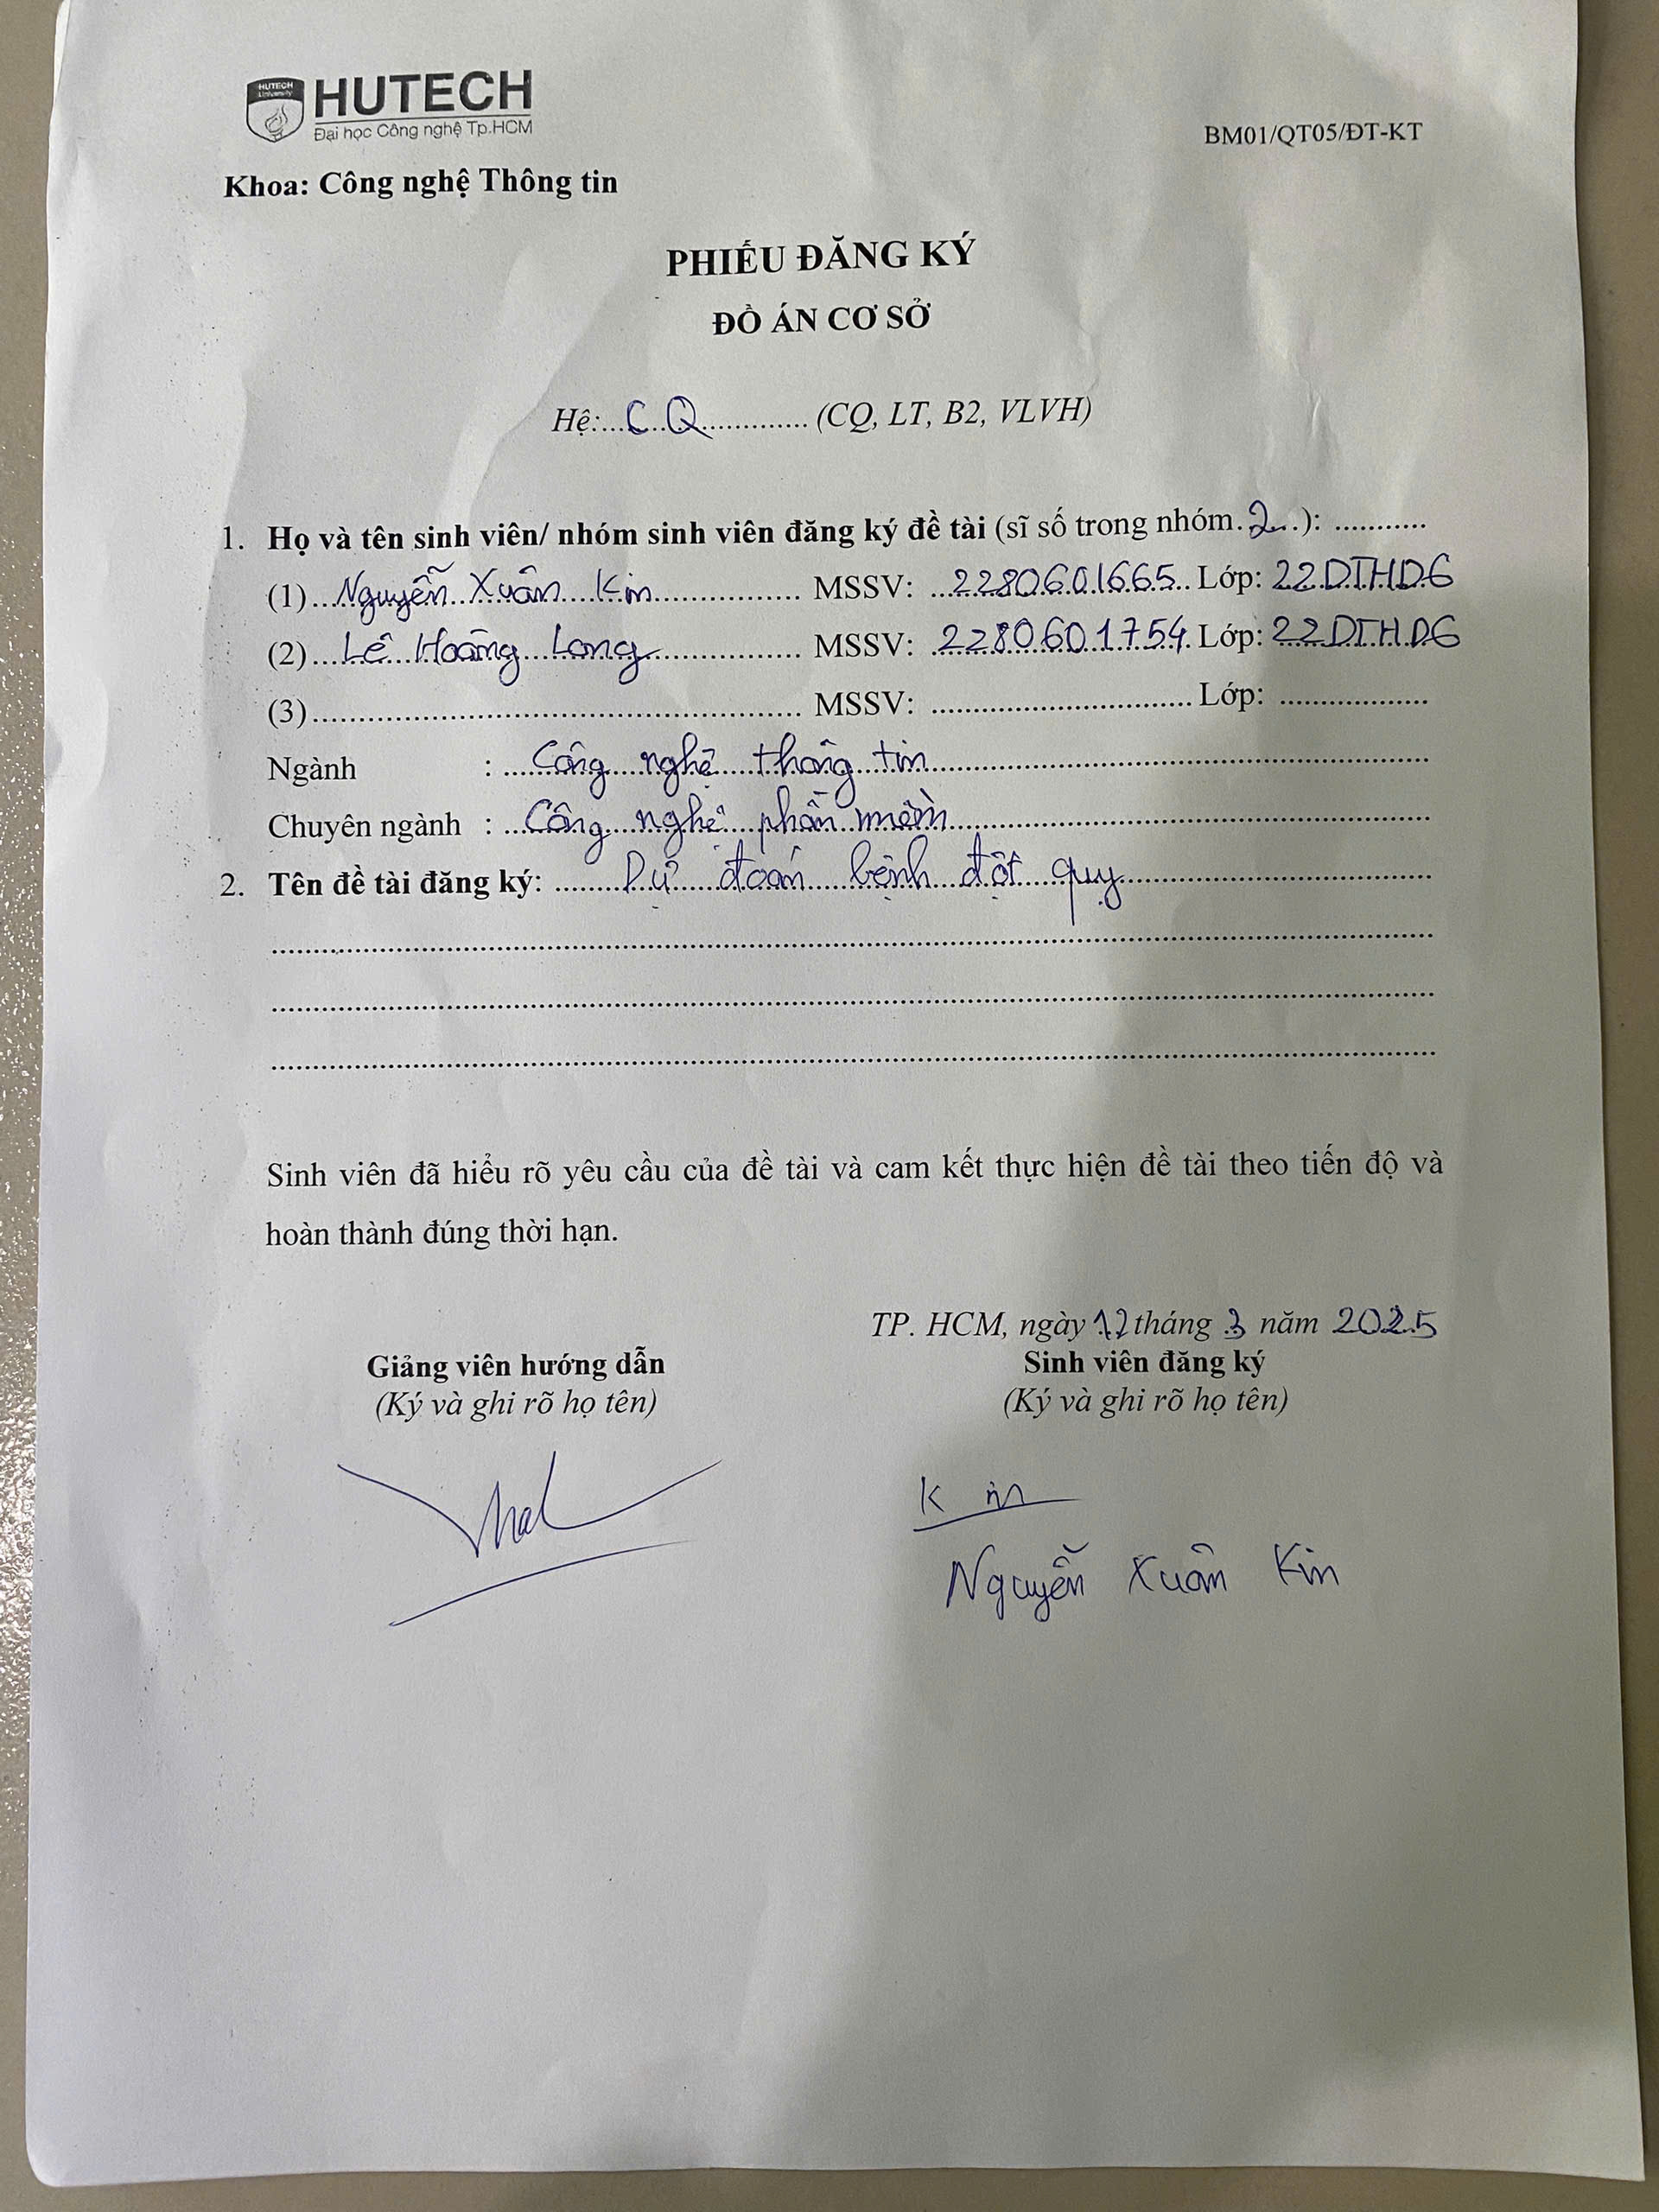 HUTECH University
HUTECH
Đại học Công nghệ Tp.HCM
BM01/QT05/ĐT-KT
Khoa: Công nghệ Thông tin
PHIẾU ĐĂNG KÝ
ĐỒ ÁN CƠ SỞ
Hệ:...CQ............. (CQ, LT, B2, VLVH)
1. Họ và tên sinh viên/ nhóm sinh viên đăng ký đề tài (sĩ số trong nhóm.2...): ...........
(1)...Nguyễn Xuân Kin................ MSSV: ...2280601665.. Lớp: 22DTHD6
(2)...Lê Hoàng Long................ MSSV: ..2280601754. Lớp: 22DTHD6
(3)..................................................... MSSV: ............................ Lớp: ................
Ngành : ...Công nghệ thông tin.....................................................
Chuyên ngành : ...Công nghệ phần mềm.....................................................
2. Tên đề tài đăng ký: ........Dự đoán bệnh đột quỵ.................................
Sinh viên đã hiểu rõ yêu cầu của đề tài và cam kết thực hiện đề tài theo tiến độ và
hoàn thành đúng thời hạn.
TP. HCM, ngày 12 tháng 3 năm 2025
Giảng viên hướng dẫn Sinh viên đăng ký
(Ký và ghi rõ họ tên) (Ký và ghi rõ họ tên)
Kin
Nguyễn Xuân Kin